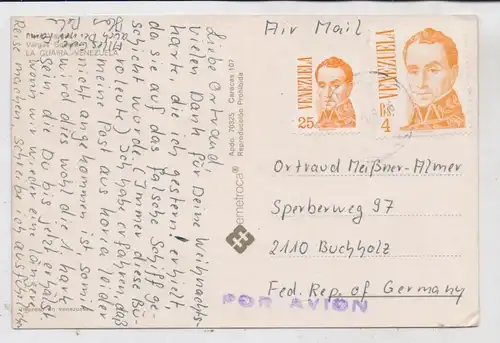 Air Mail
VENEZUELA
25
VENEZUELA
Bs. 4
Ortraud Meißner-Almer
Sperberweg 97
2110 Buchholz
Fed. Rep. of Germany
POR AVION
Liebe Ortraud
Vielen Dank für Deine Weihnachts-
karte, die ich gestern erhielt
da sie auf das falsche Schiff ge-
schickt worde. (Immer diese Bü-
roleute) Ich habe erfahren, daß
meine Post aus Korea leider
nicht angekommen ist, somit
wird dies wohl die 1. Karte
sein, die Du bis jetzt erhälst
wenn wir wieder eine längere
Reise machen, schreibe ich ausführlich
Alles Gute
auch Deinen Eltern
LA GUAIRA, VENEZUELA
Apdo. 70325 Caracas 107
Reproducción Prohibida
emetroca